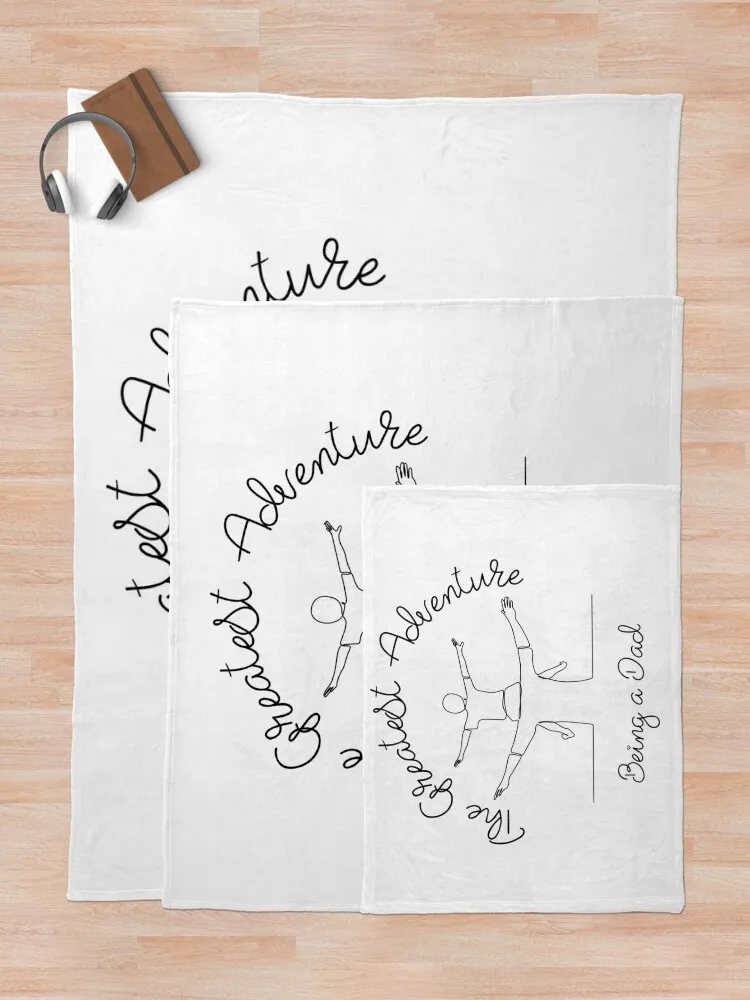 test A ture
e Greatest Adventure
The Greatest Adventure
Being a Dad